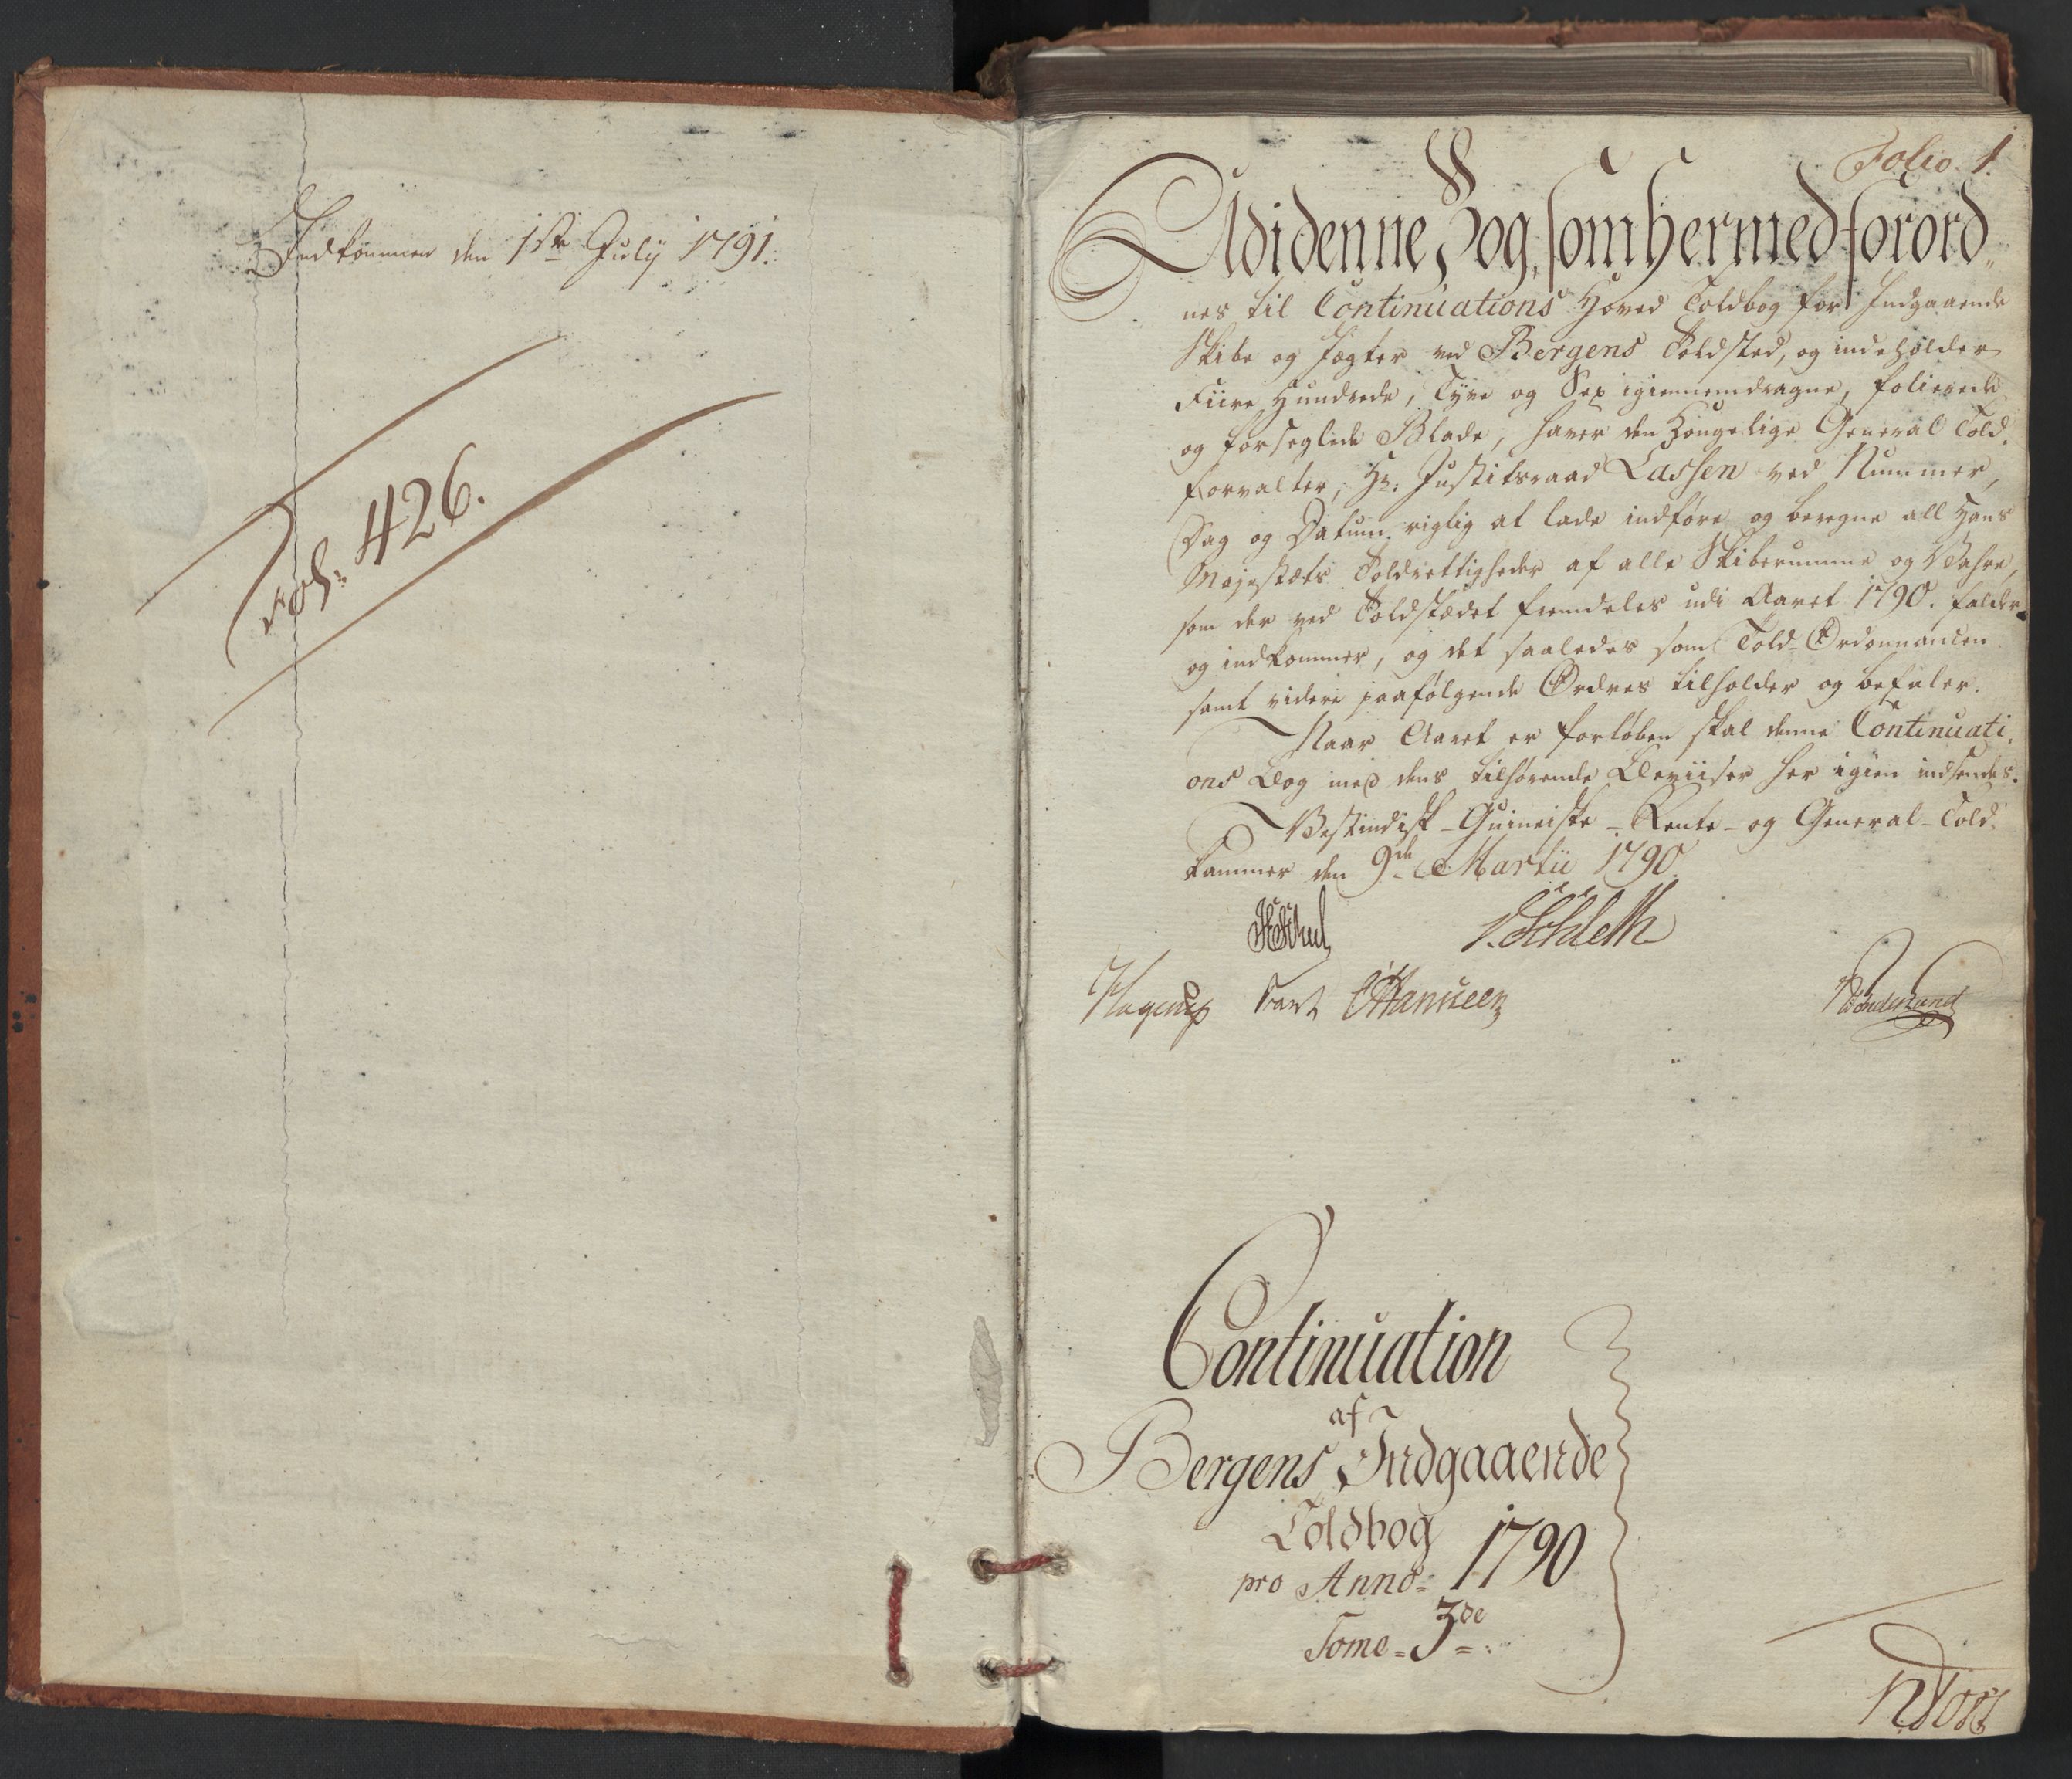 Indkommen den 1ste Julij 1791.
Fol: 426.
Folio 1.
Udi denne Bog, som hermed forord„
nes til Continuations Hoved Toldbog for Indgaaende
Skibe og Jægter ved Bergens Toldsted, og indeholder
Fiire Hundrede, Tyve og Sex igiennemdragne, folierede
og forseglede Blade, haver den Kongelige General Told„
forvalter, Hr: Justitsraad Lassen ved Nummer,
Dag og Datum rigtig at lade indføre og beregne all Hans
Majestæts Toldrettigheder af alle Skiberumme og Vahre,
som der ved Toldstædet fremdeles udi Aaret 1790. falder
og indkommer, og det saaledes som Told-Ordonnancen
samt videre paafølgende Ordres tilholder og befaler.
Naar Aaret er forløben skal denne Continuati„
ons Bog med dens tilhørende Beviiser her igien indsendes.
Vestindisk-Guineiske-Rente- og General-Told„
kammer den 9de Martii 1790.
Schleth
Hagerup
Continuation
af
Bergens Indgaaende
Toldbog
pro Anno 1790
Tome 3de